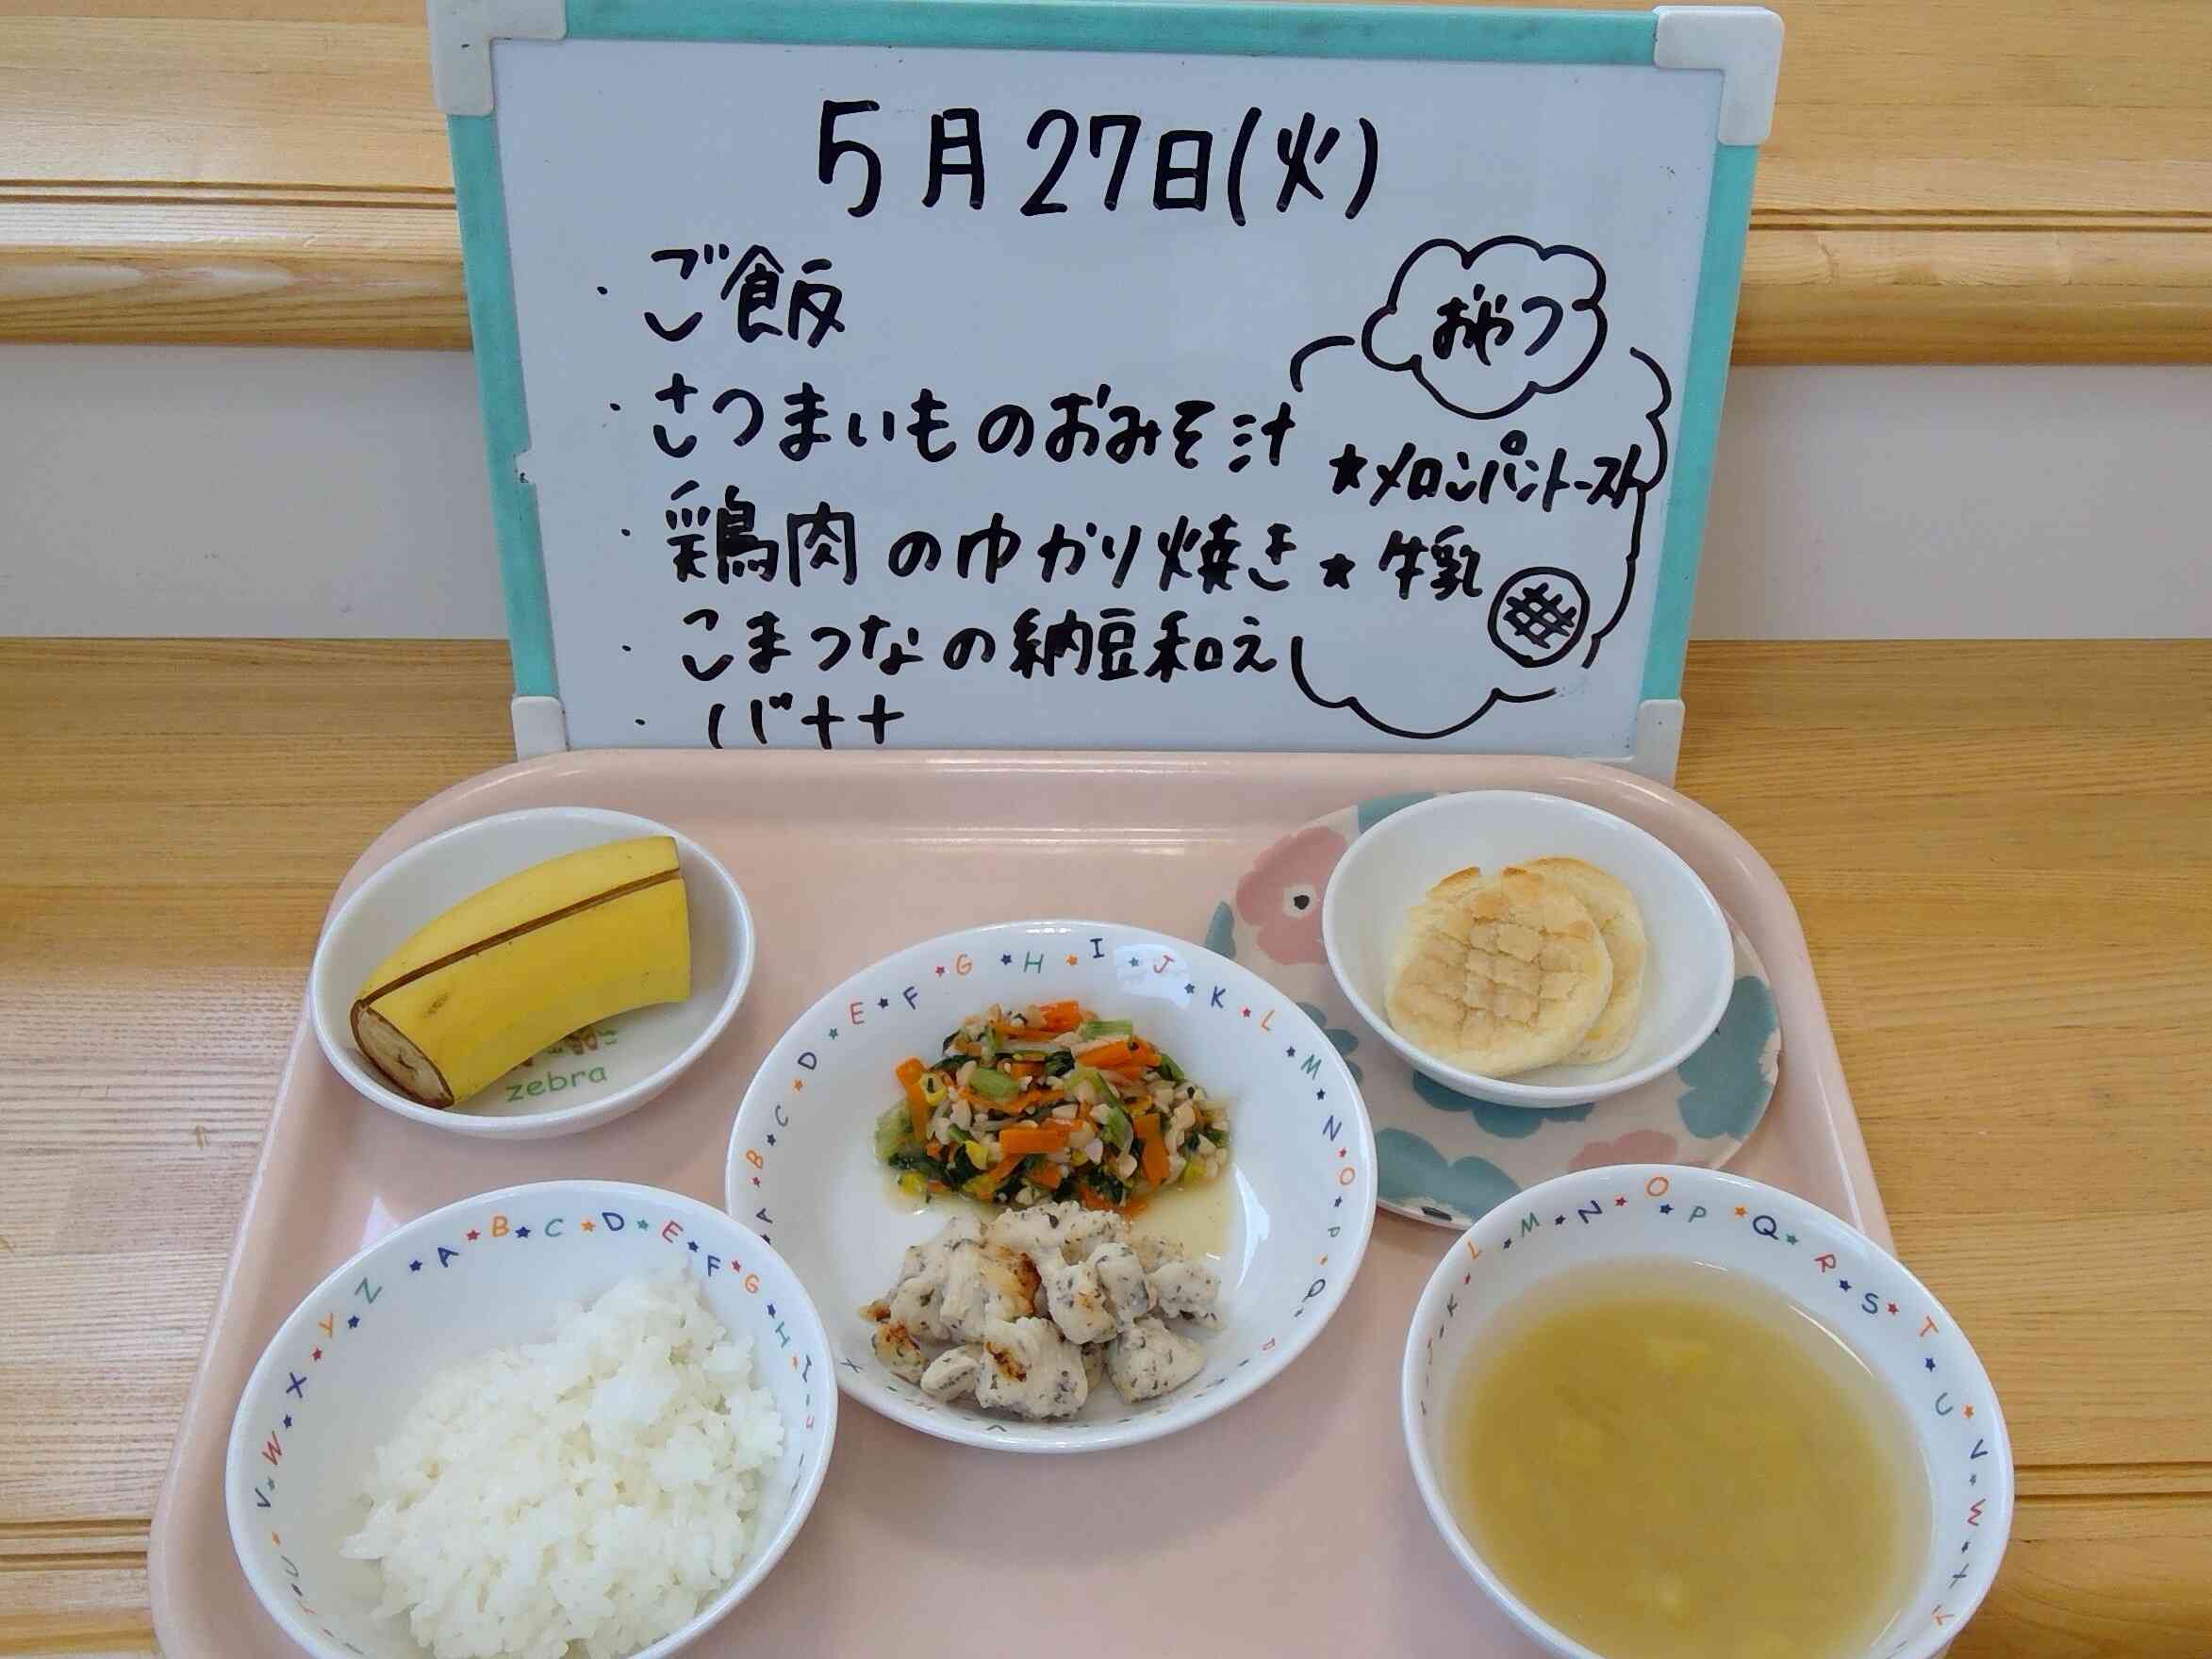 5月27日(火)
・ご飯
・さつまいものおみそ汁
・鶏肉のゆかり焼き
・こまつなの納豆和え
・バナナ
おやつ
★メロンパントースト
★牛乳
zebra
A★B★C★D★E★F★G★H★I★J★K★L★M★N★O★P★Q
U★V★W★X★Y★Z★A★B★C★D★E★F★G★H
K★L★M★N★O★P★Q★R★S★T★U★V★W★X★Y